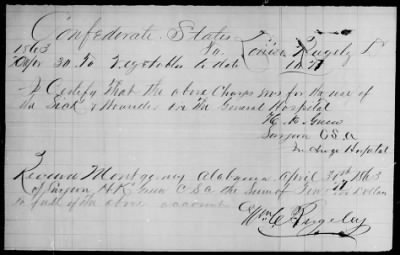 Confederate States
To Louisa Rugely Dr
1863
Apr 30 To Vegetables to date 10.77
I Certify that the above Charge was for the use of
the Sick & Wounded in the General Hospital
Surgeon CSA
In Charge Hospital
Received Montgomery Alabama April 30th 1863
of Surgeon H K Green C S A the Sum of Ten 77 Dollars
in full of the above account
Rugeley